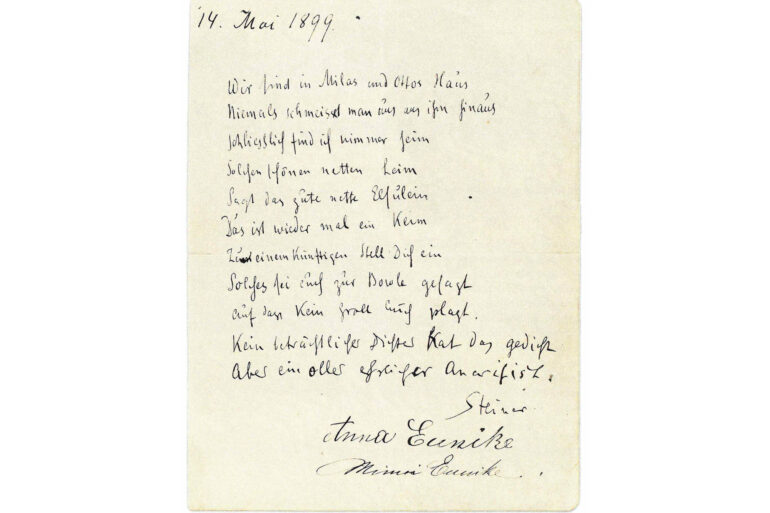 14. Mai 1899.
Wir sind in Milas und Ottos Haus
Niemals schmeisst man uns aus ihm hinaus
Schliesslich find ich nimmer heim
Solchen schönen netten Leim
Sagt das gute nette
Das ist wieder mal ein Keim
einem Künftigen Stell Dich ein
Solches sei Euch zur Bowle gesagt
Auf dass Kein Groll Euch plagt.
Kein beträchtlicher Dichter hat das gedicht
Aber ein oller ehrlicher Anarchist.
Steiner
Anna Eunike
Eunike.